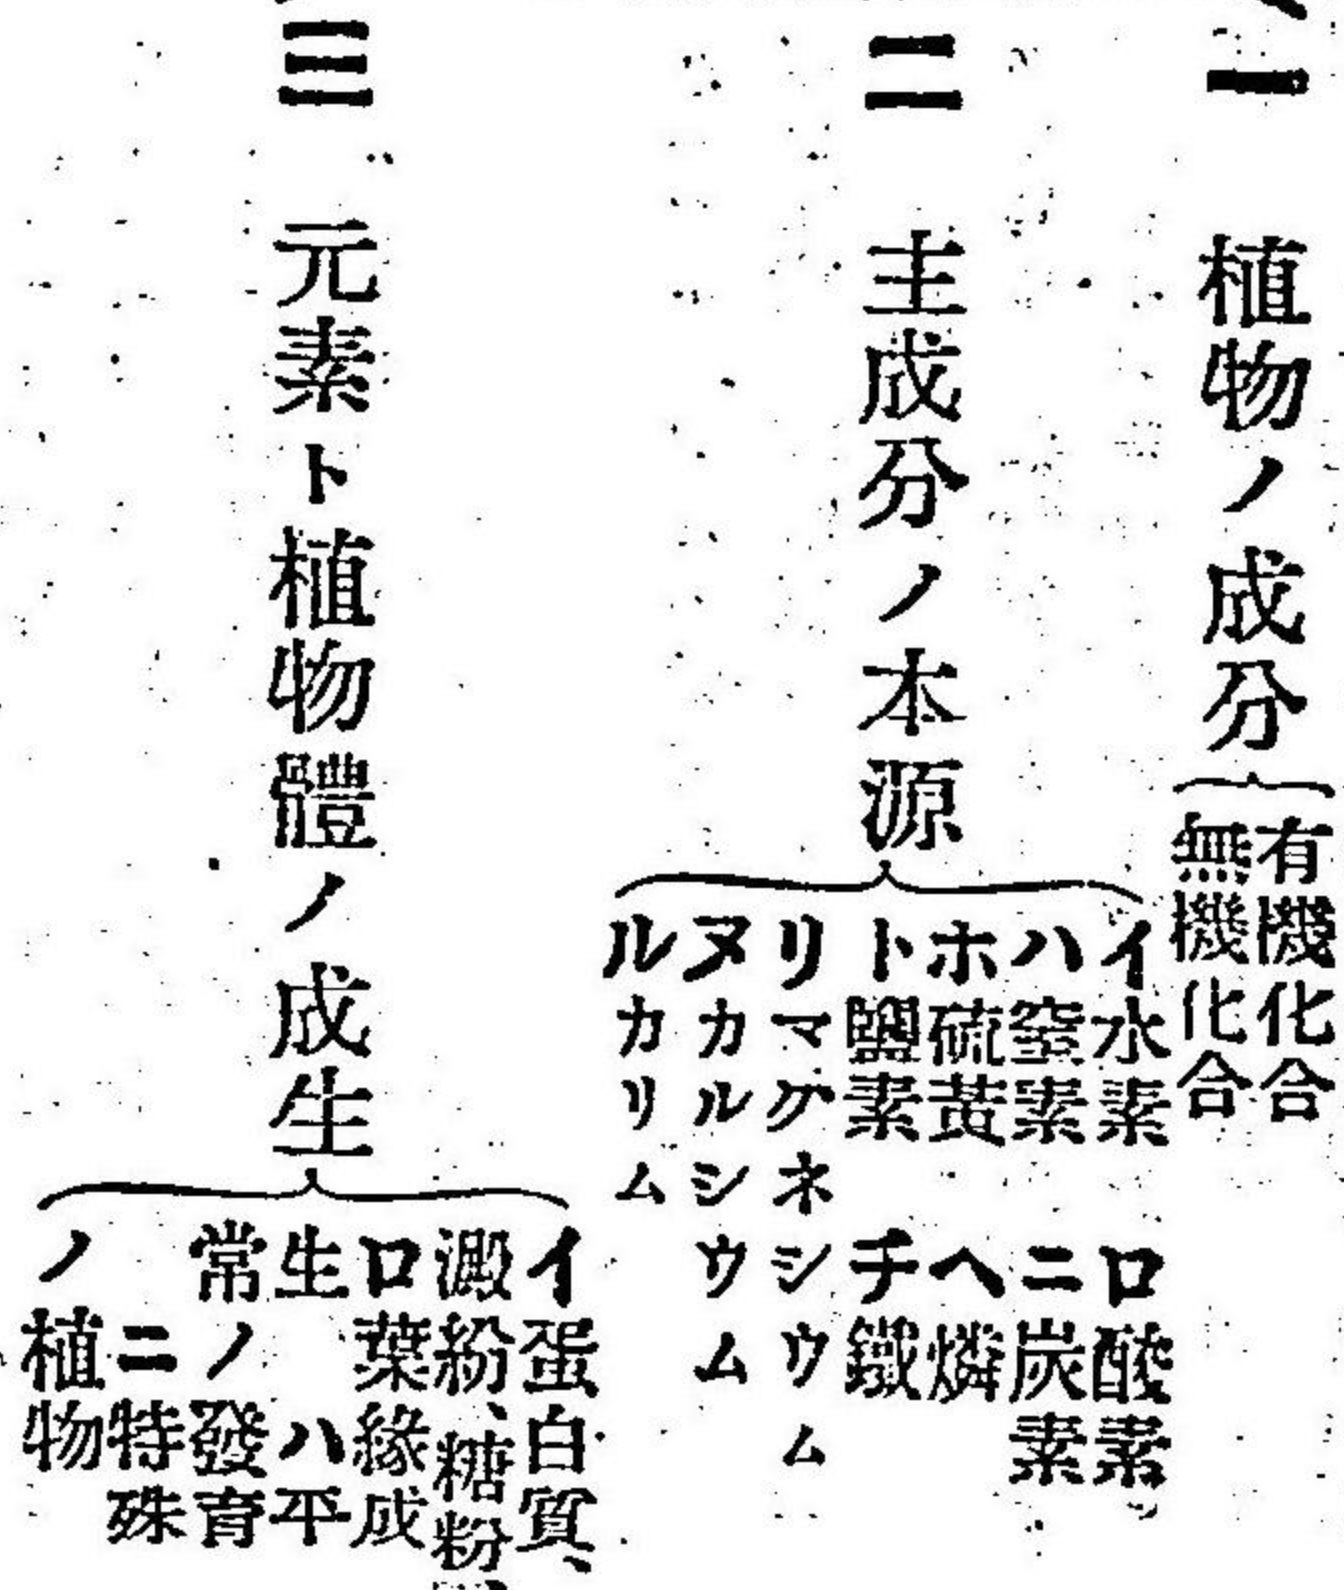 一 植物ノ成分
有機化合
無機化合
二 主成分ノ本源
イ水素 ロ酸素
ハ窒素 ニ炭素
ホ硫黄 ヘ燐
ト鹽素 チ鐵
リマグネシウム
ヌカルシウム
ルカリム
三 元素ト植物體ノ成生
イ蛋白質、
澱粉、糖粉、
ロ葉緣成
生 ハ平
常ノ發育
ニ特殊
ノ植物